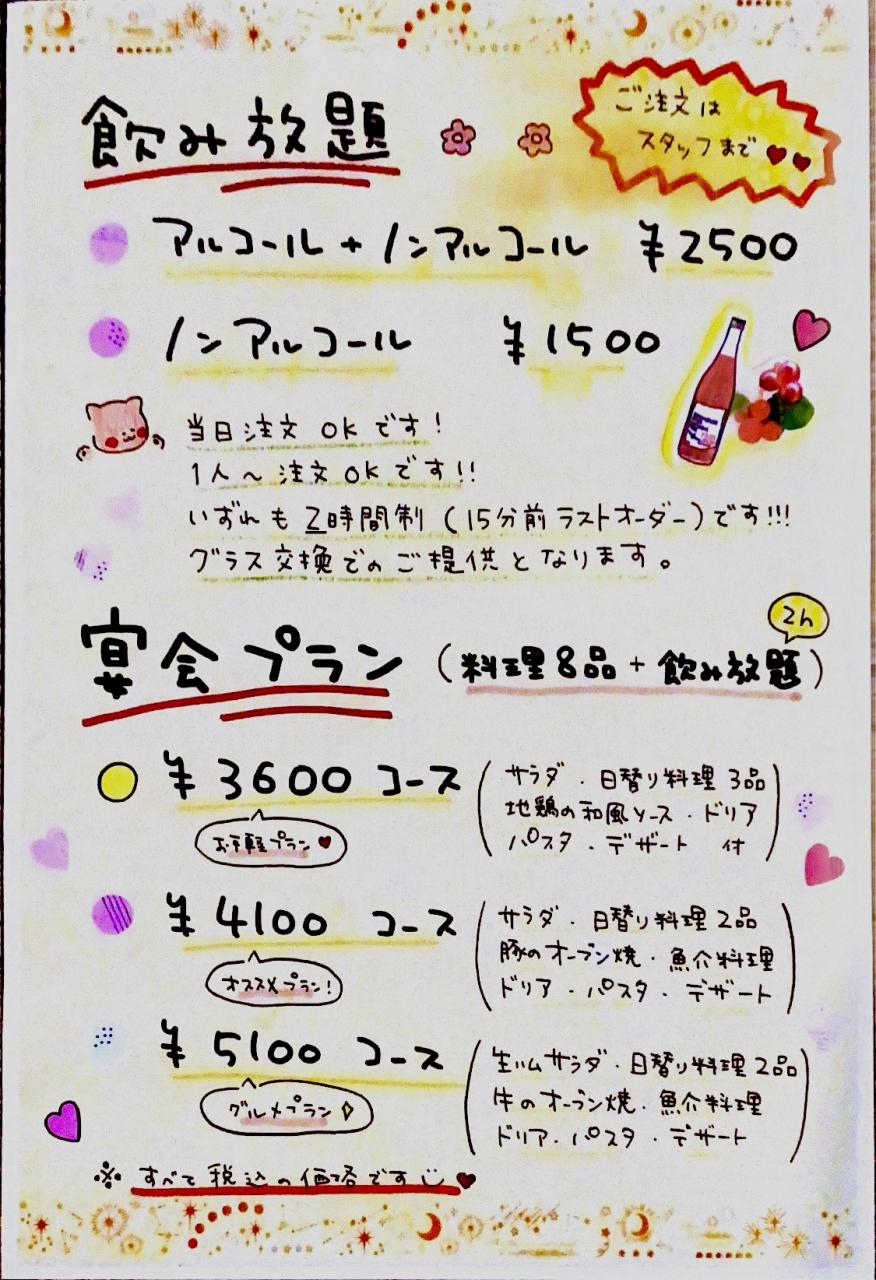 飲み放題
ご注文は
スタッフまで
アルコール+ノンアルコール ¥2500
ノンアルコール ¥1500
当日注文OKです!
1人〜注文OKです!!
いずれも2時間制(15分前ラストオーダー)です!!!
グラス交換でのご提供となります。
宴会プラン(料理8品+飲み放題)
2h
¥3600 コース
お手軽プラン
(サラダ・日替り料理3品
地鶏の和風ソース・ドリア
パスタ・デザート 付)
¥4100 コース
オススメプラン!
(サラダ・日替り料理2品
豚のオーブン焼・魚介料理
ドリア・パスタ・デザート)
¥5100 コース
グルメプラン
(生ハムサラダ・日替り料理2品
牛のオーブン焼・魚介料理
ドリア・パスタ・デザート)
※すべて税込の価格です